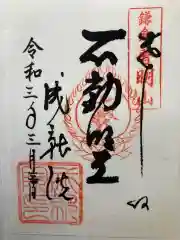 鎌倉普明山
奉拝
不動明王
成就院
令和三年三月